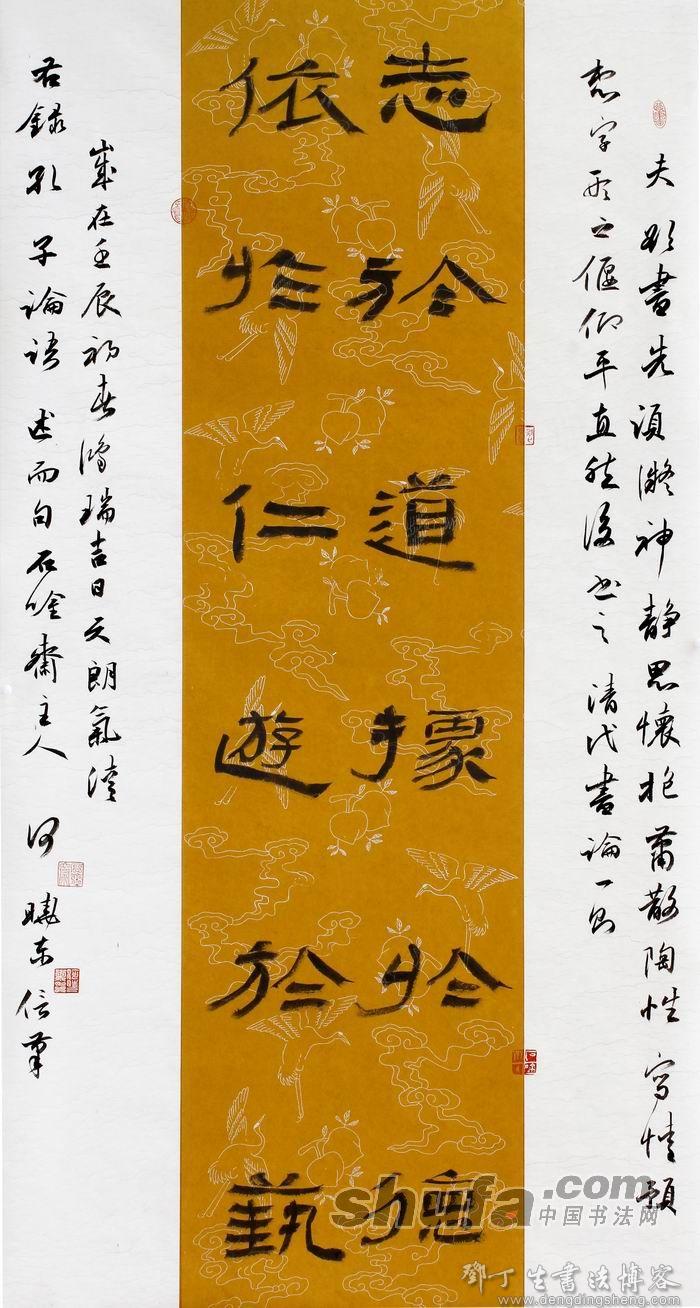 夫欲書先須凝神靜思懷抱蕭散陶性寫情預
想字形之偃仰平直然後書之清代書論一則
志於道據於德
依於仁遊於藝
歲在壬辰初春鴻瑞吉日天朗氣清
右錄孔子論語述而句石唫齋主人何曉東信筆
shufa.com
中国书法网
鄧丁生書法博客
www.dengdingsheng.com